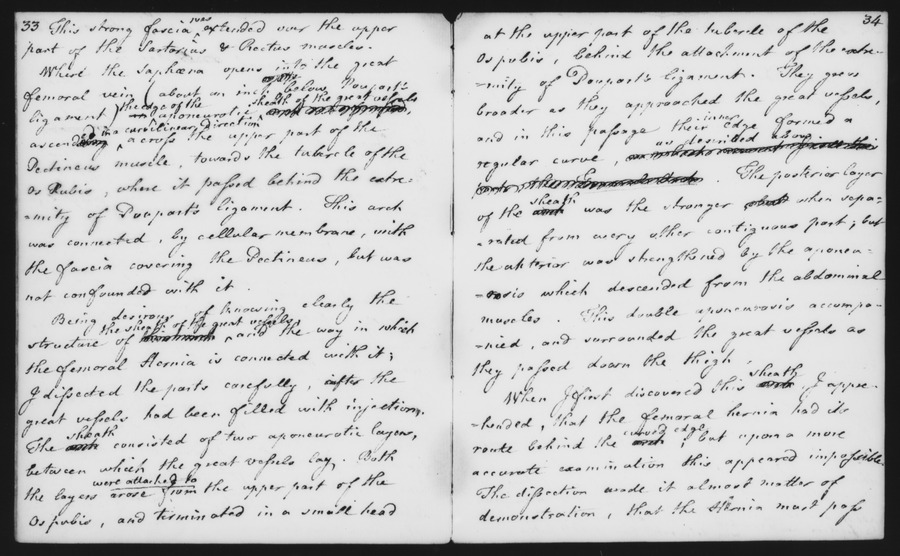 33 This strong fascia was extended over the upper
part of the Sartorius & Rectus muscles.
Where the Saphæna opens into the great
femoral vein (about an inch below Poupart's
ligament) the edge of the aponeurotic sheath of the great vessels,
ascended in a curvilinear direction across the upper part of the
Pectineus muscle, towards the tubercle of the
Os Pubis, where it passed behind the extre-
-mity of Poupart's ligament This arch
was connected, by cellular membrane, with
the fascia covering the Pectineus, but was
not confounded with it.
Being desirous of knowing clearly the
structure of the sheath of the great vessels, and the way in which
the femoral Hernia is connected with it;
I dissected the parts carefully, after the
great vessels had been filled with injection.
The sheath consisted of two aponeurotic layers,
between which the great vessels lay. Both
the layers were attached to arose from the upper part of the
Os pubis, and terminated in a small head
34
at the upper part of the tubercle of the
Os pubis, behind the attachment of the extre-
-mity of Poupart's ligament. They grew
broader as they approached the great vessels,
and in this passage their inner edge formed a
regular curve, as described above. The posterior layer
of the sheath was the stronger when sepa-
-rated from every other contiguous part; but
the anterior was strengthened by the aponeu-
-rosis which descended from the abdominal
muscles. This double aponeurosis accompa-
-nied, and surrounded the great vessels as
they passed down the thigh.
When I first discovered this sheath I appre-
-hended, that the femoral hernia had its
route behind the curved edge; but upon a more
accurate examination this appeared impossible.
The dissection made it almost matter of
demonstration, that the Hernia must pass